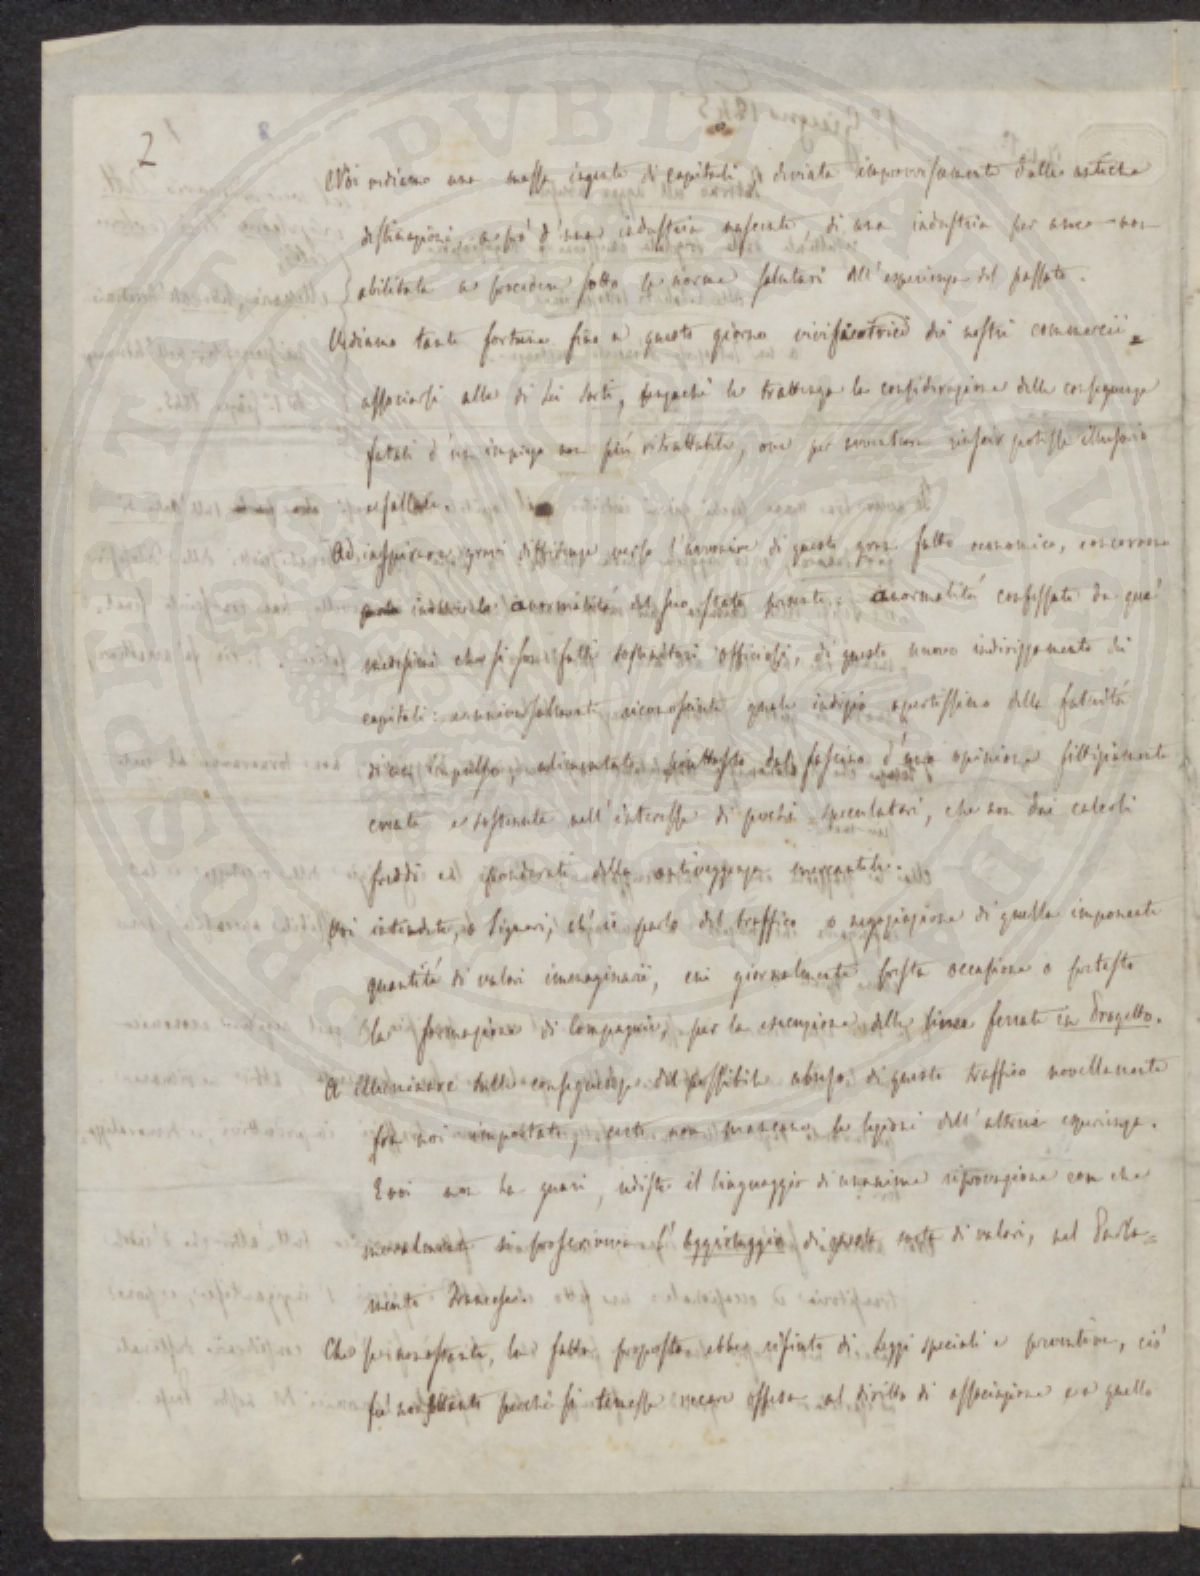 2
Noi vediamo una massa ingente di capitali, deviata improvvisamente dalle antiche
destinazioni, a pro' d'una industria nascente, di una industria per anco non
abilitata a procedere sotto le norme salutari dell'esperienza del passato.
Vediamo tante fortune fino a questo giorno vivificatrici dei nostri commercii =
associarsi alle di Lei sorti, senza che le trattenga la considerazione delle conseguenze
fatali d'un impiego non più ritrattabile, ove per avventura riescir potesse illusorio
e fallace.
Ad inspirare gravi diffidenze verso l'avvenire di questo gran fatto economico, concorrono
anormalità del suo stato presente: anormalità confessata da que'
medesimi che si son fatti sostenitori officiosi, di questo nuovo indirizzamento di
capitali: e universalmente riconosciuta quale indizio apertissimo della fatuità
di un impulso, alimentato piuttosto dal fascino d'una opinione fittiziamente
creata e sostenuta nell'interesse di pochi speculatori, che non dai calcoli
freddi e ponderati della antiveggenza mercantile.
Voi intendete, o Signori, ch'io parlo del traffico o negoziazione di quella imponente
quantità di valori immaginarii, cui giornalmente presta occasione o pretesto
la formazione di Compagnie, per la esecuzione delle linee ferrate in Progetto.
A illuminare sulle conseguenze del possibile abuso di questo traffico novellamente
fra noi importato, certo non mancano le lezioni dell'altrui esperienza.
E voi non ha guari, udiste il linguaggio di unanime riprovazione con che
moralmente si proscriveva l'Aggiotaggio di questa sorta di valori, nel Parla=
mento Francese.
Che se nonostante, la fatta proposta ebbe rifiuto di Leggi speciali e preventive, ciò
fu non perché si temesse recare offesa al diritto di associazione e a quello